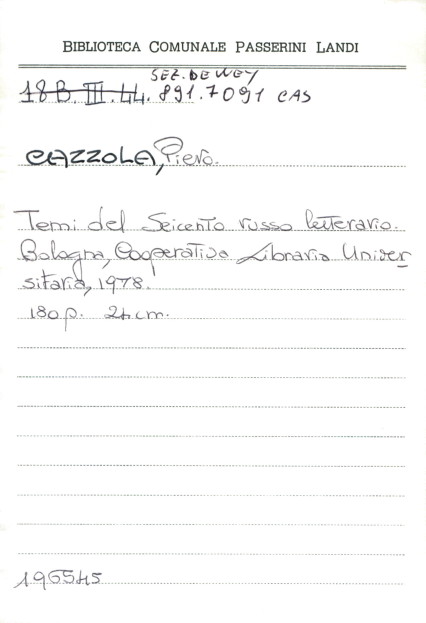 BIBLIOTECA COMUNALE PASSERINI LANDI
SEZ. DEWEY
18 B. III. 44. 891.7091 CAS
CAZZOLA, Piero.
Temi del Seicento russo letterario.
Bologna, Cooperativa Libraria Univer
sitaria, 1978.
180 p. 24 cm.
196545